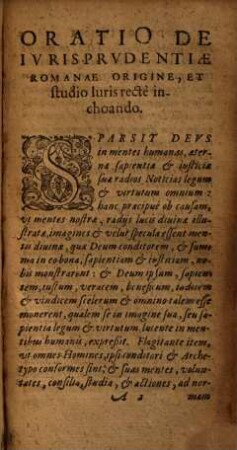 ORATIO DE
IVRISPRVDENTIÆ
ROMANAE ORIGINE, ET
studio Iuris rectè in-
choando.
SPARSIT DEVS
in mentes humanas, æter-
na sapientia & iusticia
sua radios Noticias legum
& virtutum omnium:
hanc præcipuè ob causam,
vt mentes nostræ, radijs lucis diuinæ illu-
stratæ, imagines & velut specula essent men-
tis diuinæ, qua Deum conditorem, & sum-
ma in eo bona, sapientiam & iusticiam, no-
bis monstrarent: & Deum ipsum, sapien-
tem, iustum, veracem, beneficum, iudicem
& vindicem scelerum & omnino talem esse
monerent, qualem se in imagine sua, seu sa-
pientia legum & virtutum, lucente in men-
tibus humanis, expressit. Flagitante item,
vt omnes Homines, ipsi conditori & Arche-
typo conformes sint: & suas mentes, volun-
tates, consilia, studia, & actiones, ad nor-
A 2 mam